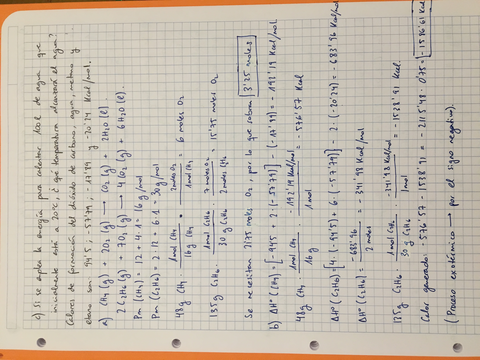 c) Si se emplea la energía para calentar 100l de agua que
inicialmente está a 20ºC, ¿ qué temperatura alcanzará el agua?
Calores de formación del dióxido de carbono, agua, metano y
etano son -94'5 ; -57'79 ; -17'89 y -20'24 Kcal/mol.
a) CH4 (g) + 2O2 (g) → CO2 (g) + 2H2O (l)
2 C2H6 (g) + 7O2 (g) → 4CO2 (g) + 6H2O (l).
Pm (CH4) = 12 + 4·1 = 16 g/mol
Pm (C2H6) = 2·12 + 6·1 = 30 g/mol
48g CH4 · 1mol CH4 / 16g CH4 · 2moles O2 / 1mol CH4 = 6 moles O2
135g C2H6 · 1mol C2H6 / 30g C2H6 · 7moles O2 / 2moles C2H6 = 15'75 moles O2
Se necesitan 21'75 moles O2 por lo que sobran 3'25 moles
b) ΔHº (CH4) = [-94'5 + 2·(-57'79)] - (-17'89) = -192'19 Kcal/mol
48g CH4 · 1mol CH4 / 16g · -192'19 Kcal / 1mol = -576'57 Kcal
ΔHº (C2H6) = [4·(-94'5) + 6·(-57'79)] - 2·(-20'24) = -683'96 Kcal/mol
ΔHº (C2H6) = -683'96 / 2moles = -341'98 Kcal/mol
135g C2H6 · 1mol C2H6 / 30g C2H6 · -341'98 Kcal / 1mol = -1538'91 Kcal.
Calor generado: -576'57 - 1538'91 = -2115'48 · 0'75 = -1586'61 Kcal
(Proceso exotérmico → por el signo negativo).